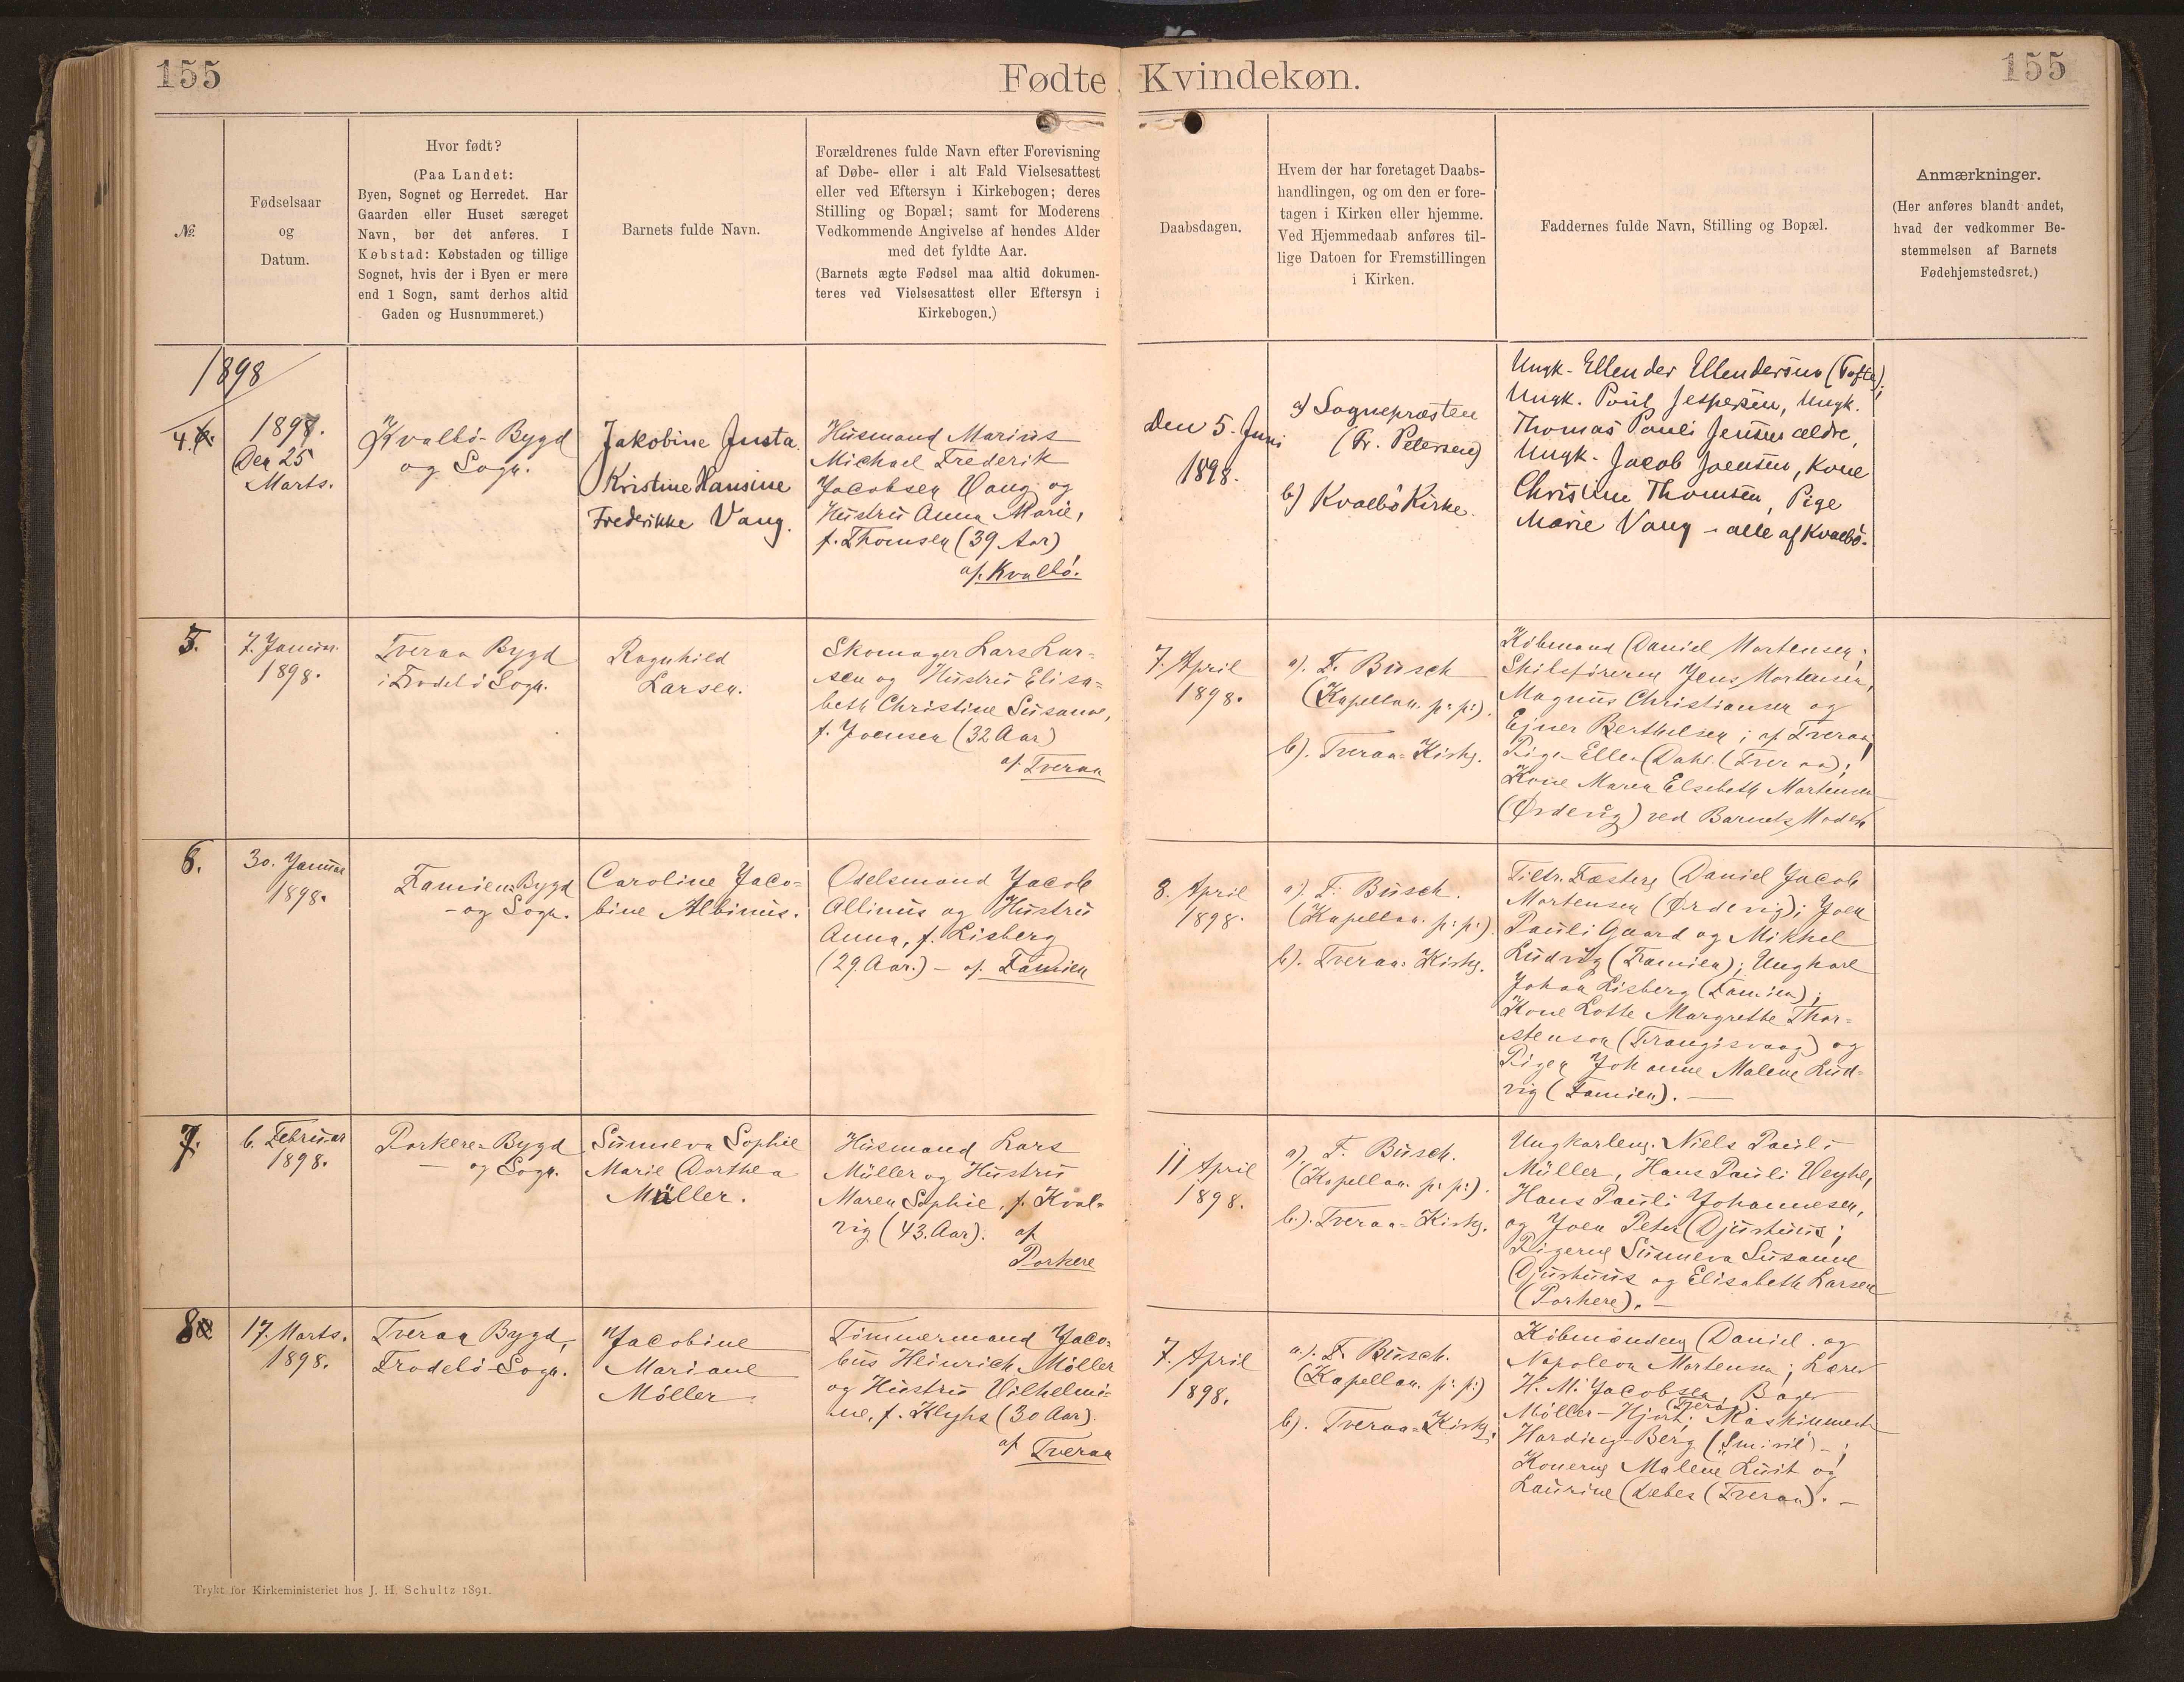 155
Fødte Kvindekøn.
155
№.
Fødselsaar
og
Datum.
Hvor født?
(Paa Landet:
Byen, Sognet og Herredet. Har
Gaarden eller Huset særeget
Navn, bør det anføres. I
Købstad: Købstaden og tillige
Sognet, hvis der i Byen er mere
end 1 Sogn, samt derhos altid
Gaden og Husnummeret.)
Barnets fulde Navn.
Forældrenes fulde Navn efter Forevisning
af Døbe- eller i alt Fald Vielsesattest
eller ved Eftersyn i Kirkebogen; deres
Stilling og Bopæl; samt for Moderens
Vedkommende Angivelse af hendes Alder
med det fyldte Aar.
(Barnets ægte Fødsel maa altid dokumen-
teres ved Vielsesattest eller Eftersyn i
Kirkebogen.)
Daabsdagen.
Hvem der har foretaget Daabs-
handlingen, og om den er fore-
tagen i Kirken eller hjemme.
Ved Hjemmedaab anføres til-
lige Datoen for Fremstillingen
i Kirken.
Faddernes fulde Navn, Stilling og Bopæl.
Anmærkninger.
(Her anføres blandt andet,
hvad der vedkommer Be-
stemmelsen af Barnets
Fødehjemstedsret.)
1898
4.
1897.
Den 25
Marts.
Kvalbö-Bygd
og Sogn.
Jakobine Justa
Kristine Hansine
Frederikke Vang.
Husmand Marius
Michael Frederik
Jacobsen Vang og
Hustru Anna Marie,
f. Thomsen (39 Aar)
af Kvalbö.
Den 5. Juni
1898.
a) Sognepræsten
(Fr. Petersen)
b) Kvalbö Kirke.
Ungk. Ellender Ellendersen (Tofte),
Ungk. Poul Jespersen, Ungk.
Thomas Pauli Jensen ældre,
Ungk. Jacob Joensen, Kone
Christine Thomsen, Pige
Marie Vang - alle af Kvalbö.
5.
7. Januar.
1898.
Tveraa Bygd
i Frodebö Sogn.
Ragnhild
Larsen.
Skomager Lars Lar=
sen og Hustru Elisa=
beth Christine Susanne,
f. Joensen (32 Aar)
af Tveraa
7. April
1898.
a). F. Busch
(Kapellan. p: p:).
b). Tveraa=Kirke.
Köbmand Daniel Mortensen;
Skibsförerne Jens Mortensen,
Magnus Christiansen og
Ejner Berthelsen; af Tveraa;
Pige Ellen Dahl (Tveraa);
Kone Maren Elsebeth Mortensen
(Ördevig) ved Barnets Moder
6.
30. Januar
1898.
Famien=Bygd
- og Sogn.
Caroline Jaco=
bine Albinus.
Odelsmand Jacob
Albinus og Hustru
Anna, f. Lisberg
(29. Aar.) - af Famien
8. April
1898.
a). F. Busch.
(Kapellan. p: p:).
b). Tveraa=Kirke.
Tiltr. Fæstere Daniel Jacob
Mortensen (Ördevig); Joen
Pauli Gaard og Mikkel
Ludvig (Famien); Ungkarl
Johan Lisberg (Famien);
Kone Lotte Margrethe Thor=
stensen (Trangisvaag) og
Pigen Johanne Malene Lud=
vig (Famien). -
7.
6. Februar
1898.
Porkere=Bygd
- og Sogn.
Sunneva Sophie
Marie Dorthea
Müller.
Husmand Lars
Müller og Hustru
Maren Sophie, f. Kval=
vig (43. Aar). af
Porkere
11 April
1898.
a). F. Busch.
(Kapellan. p: p:).
b.). Tveraa=Kirke.
Ungkarlene. Niels Pauli
Müller, Hans Pauli Veyhe,
Hans Pauli Johannesen,
og Joen Peter Djurhuus;
Pigerne Sunneva Susanne
Djurhuus og Elisabeth Larsen
(Porkere). -
8
17. Marts.
1898.
Tveraa Bygd,
Frodebö-Sogn.
Jacobine
Mariane
Möller
Tömmermand Jaco=
bus Heinrich Möller
og Hustru Vilhelmi=
ne, f. Klyhs (30 Aar).
af Tveraa
7. April
1898.
a.). F. Busch.
(Kapellan. p: p:)
b). Tveraa=Kirke.
Köbmændene Daniel og
Napoleon Mortensen; Lærer
H. M. Jacobsen, Bager
Möller-Hjort (Tveraa); Maskinmest.
Harding-Berg (Smiril) -;
Konerne Malene Luit og
Laurine Debes (Tveraa). -
Trykt for Kirkeministeriet hos J. H. Schultz 1891.